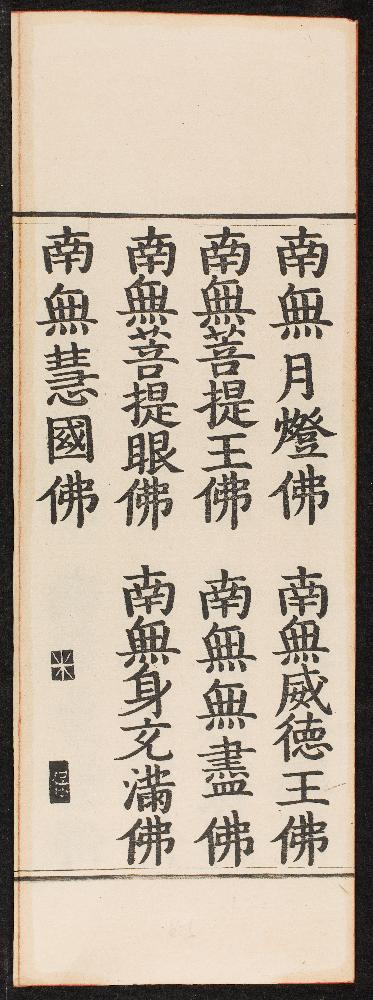 南無月燈佛
南無威德王佛
南無菩提王佛
南無無盡佛
南無菩提眼佛
南無身充滿佛
南無慧國佛